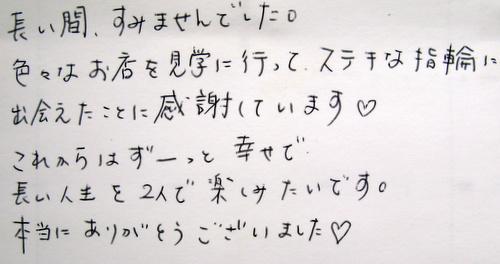 長い間、すみませんでした。
色々なお店を見学に行って、ステキな指輪に
出会えたことに感謝しています♡
これからはずーっと幸せで
長い人生を2人で楽しみたいです。
本当にありがとうございました♡